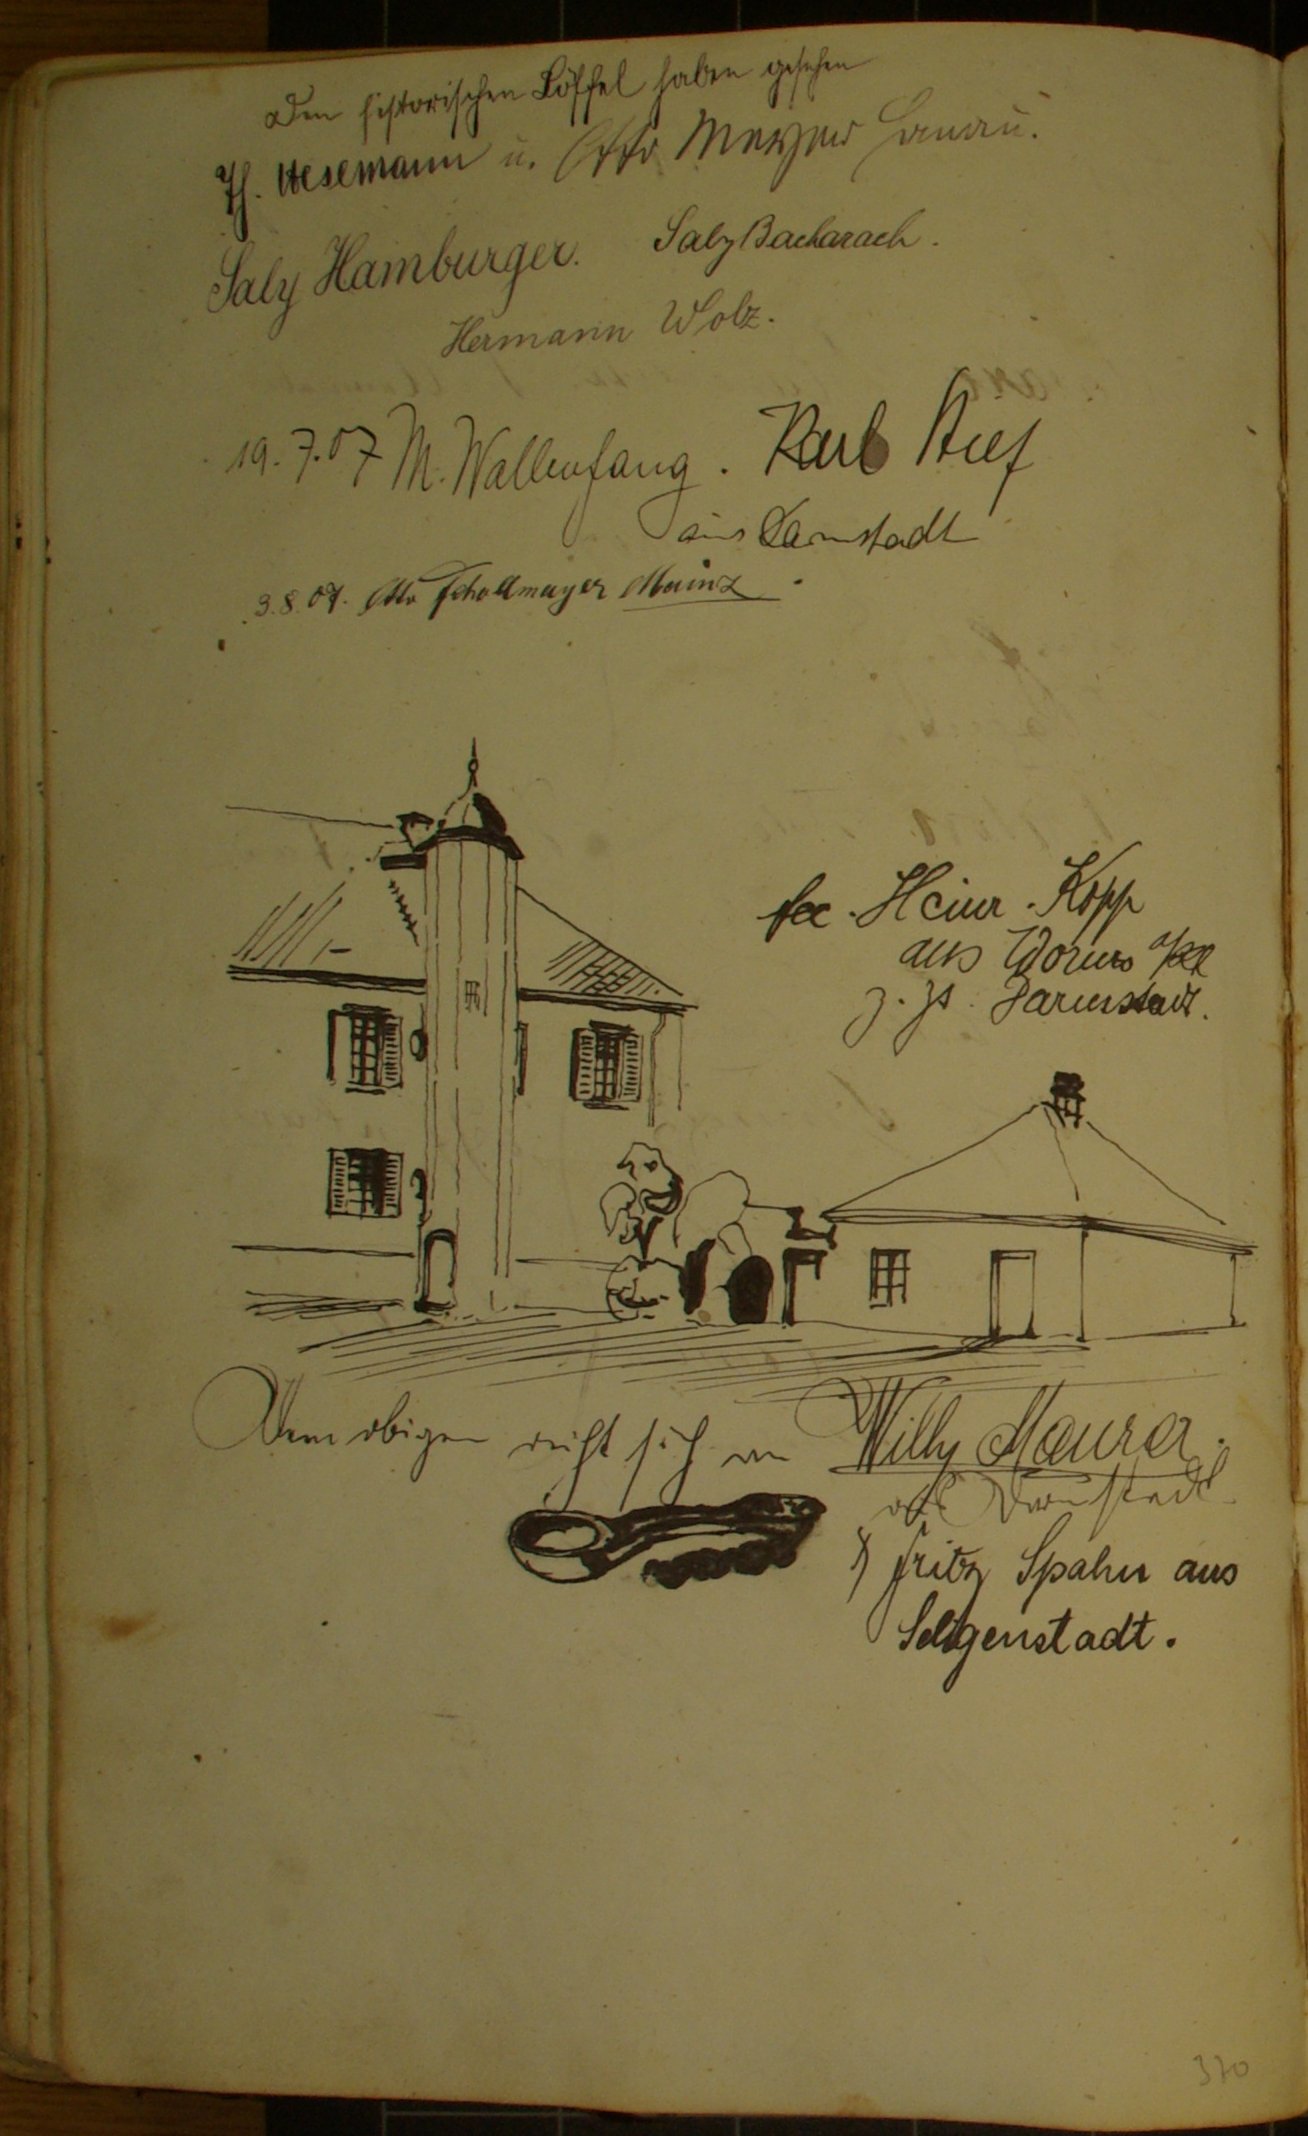 Den historischen Löffel haben gesehen
Th. Wesemann u. Otto Meyer Hanau.
Saly Hamburger. Saly Bacharach.
Hermann Wolz.
19.7.07 M. Wallenfang. Karl Stief
aus Darmstadt
3.8.07. Otto Schollmayer Mainz
fec. Heinr. Kopp
aus Worms a/Rh
z. Zt. Darmstadt.
Dem obigen reiht sich an Willy Maurer.
aus Darmstadt
Fritz Spahn aus
Seligenstadt.
370